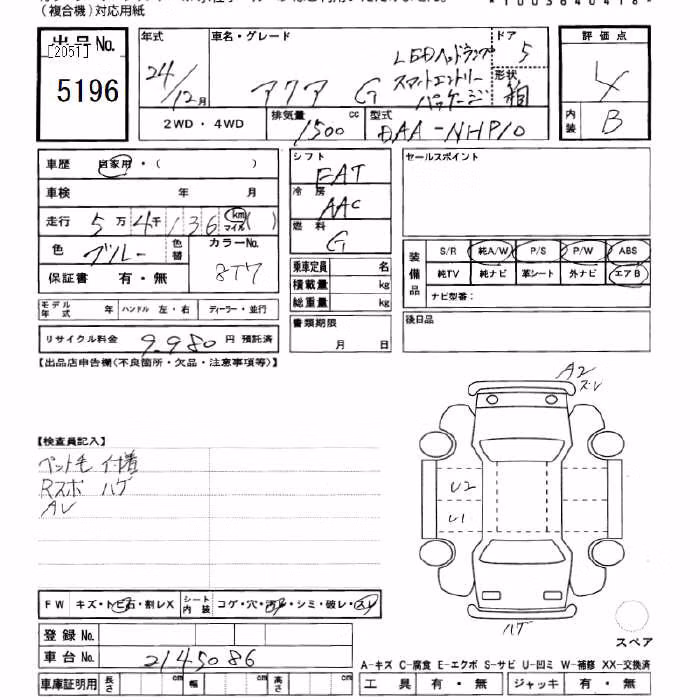 (複合機)対応用紙
出品No.
[2051]
5196
年式
24/12月
車名・グレード
アクア G
LEDヘッドランプ
スマートエントリー
パッケージ
ドア 5
形状 箱
評価点
4
内装 B
2WD・4WD
排気量 1500 cc
型式 DAA-NHP10
車歴 自家用・( )
車検 年 月
走行 5万4千136 km マイル ( )
色 ブルー 色替
カラーNo. 8T7
保証書 有・無
モデル年式 年 ハンドル 左・右 ディーラー・並行
リサイクル料金 9,980 円 預託済
シフト FAT
冷房 AAC
燃料 G
乗車定員 名
積載量 kg
総重量 kg
書類期限
月 日
セールスポイント
装備品
S/R 純A/W P/S P/W ABS
純TV 純ナビ 革シート 外ナビ エアB
ナビ型番:
後日品
【出品店申告欄(不良箇所・欠品・注意事項等)】
【検査員記入】
ペット毛 付着
Rスポ ハゲ
AV
A2
ズレ
U2
U1
ハゲ
スペア
FW キズ・トビ石・割レX シート内装 コゲ・穴・汚レ・シミ・破レ・スレ
登録No.
車台No. 2145086
車庫証明用 長さ cm 幅 cm 高さ cm
A-キズ C-腐食 E-エクボ S-サビ U-凹ミ W-補修 XX-交換済
工具 有・無 ジャッキ 有・無